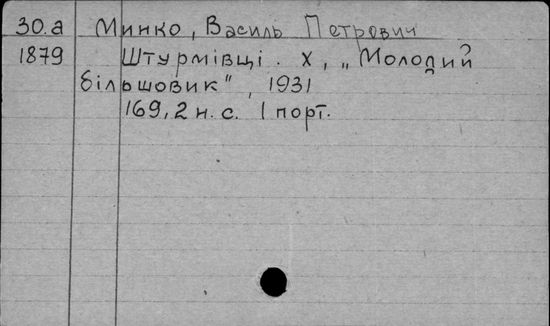 30.а Минко, Василь Петрович
1879 Штурмівці. Х, „Молодий
більшовик", 1931
169, 2 н. с. 1 порт.